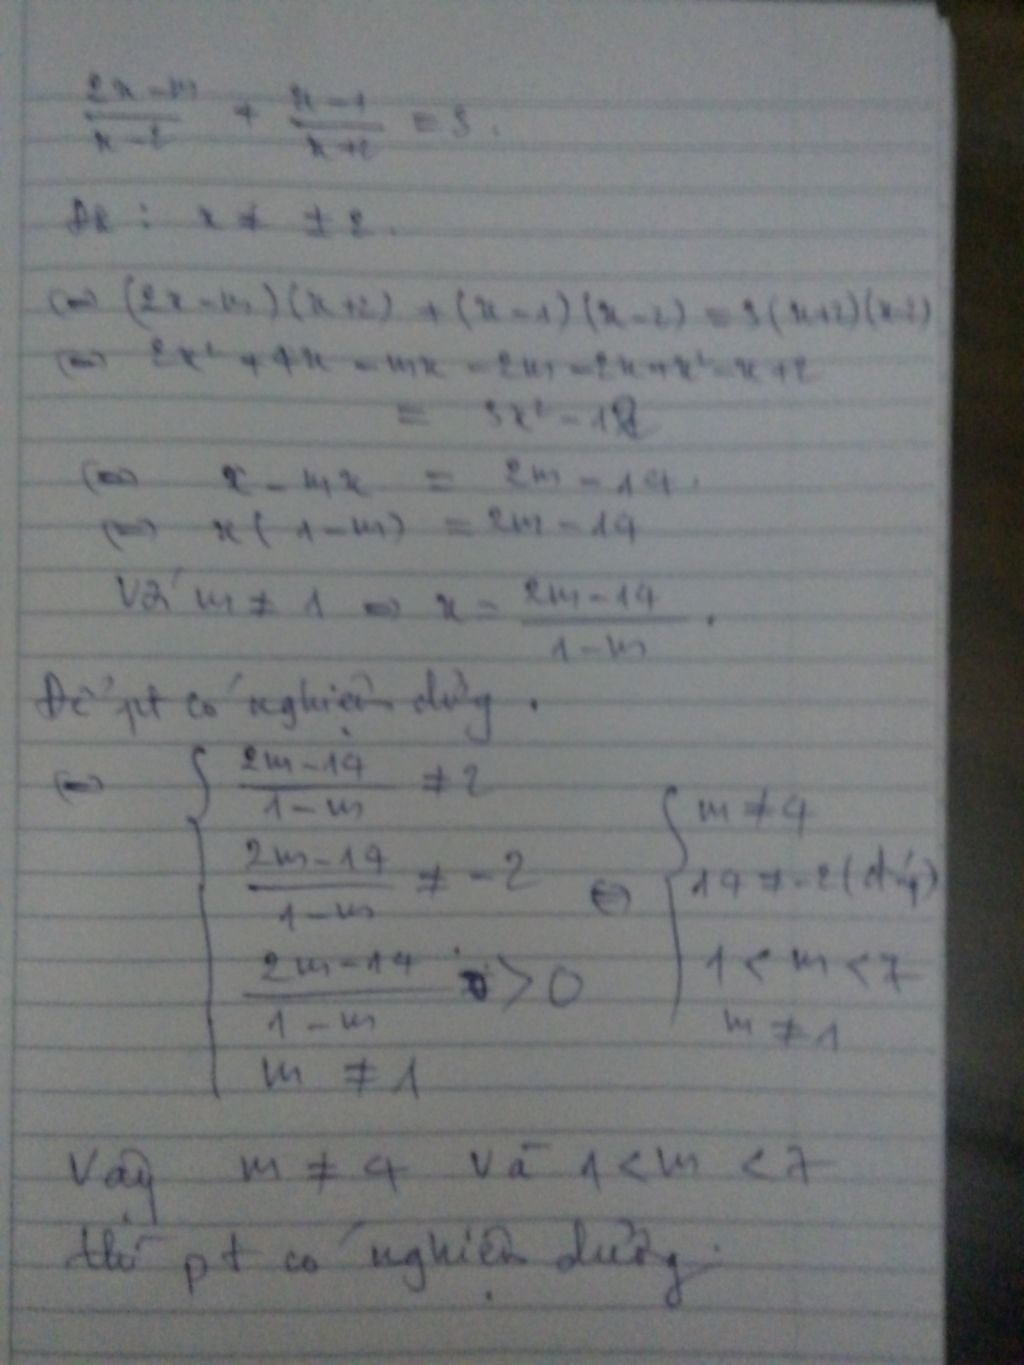 \frac{2x-m}{x-2} + \frac{x-1}{x+2} = 3.
ĐK : x ≠ ±2.
<=> (2x-m)(x+2) + (x-1)(x-2) = 3(x+2)(x-2)
<=> 2x² + 4x - mx - 2m - 2x + x² - x + 2
= 3x² - 12
<=> x - mx = 2m - 14.
<=> x(1-m) = 2m - 14
Với m ≠ 1 => x = \frac{2m-14}{1-m}.
Để pt có nghiệm dương.
<=> { \frac{2m-14}{1-m} ≠ 2
\frac{2m-14}{1-m} ≠ -2
\frac{2m-14}{1-m} > 0
m ≠ 1
<=> { m ≠ 4
14 ≠ -2 (đúng)
1 < m < 7
m ≠ 1
Vậy m ≠ 4 và 1 < m < 7
thì pt có nghiệm dương.